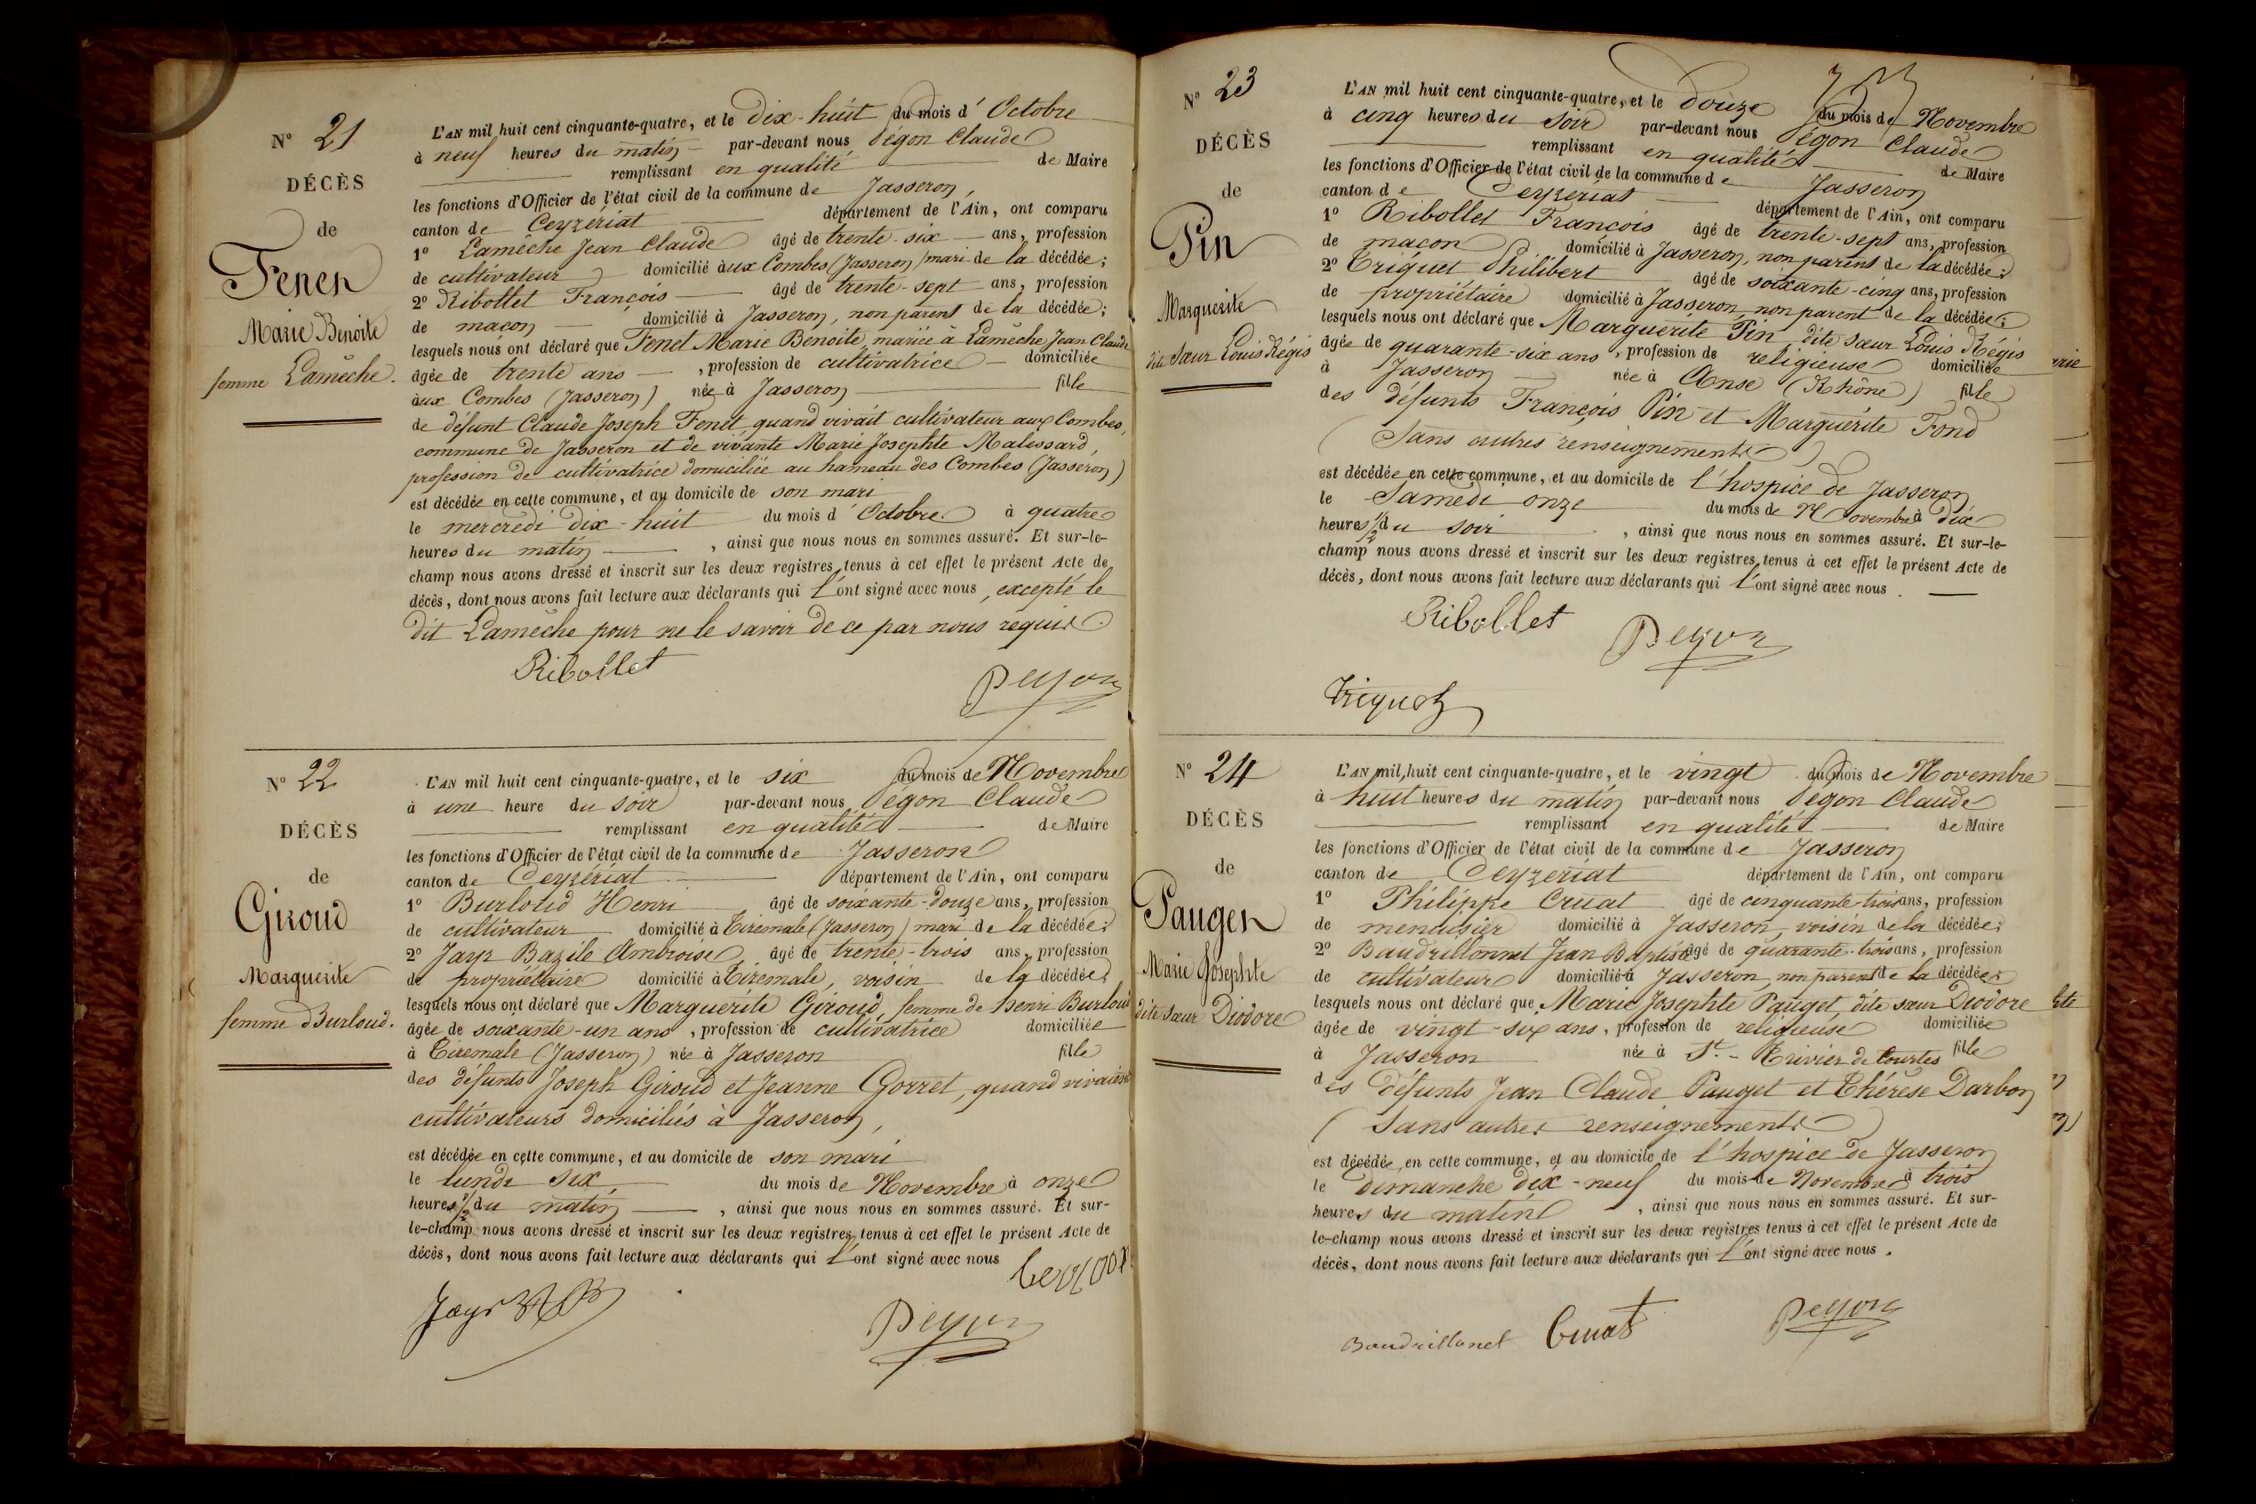 N° 21
DÉCÈS
de
Fenet
Marie Benoite
femme Lamêche.
L'AN mil huit cent cinquante-quatre, et le dix-huit du mois d'Octobre
à neuf heures du matin par-devant nous Dégon Claude
remplissant en qualité de Maire
les fonctions d'Officier de l'état civil de la commune de Jasseron,
canton de Ceyzériat département de l'Ain, ont comparu
1° Lamêche Jean Claude âgé de trente-six ans, profession
de cultivateur domicilié aux Combes (Jasseron) mari de la décédée;
2° Ribollet François âgé de trente-sept ans, profession
de maçon domicilié à Jasseron, non parent de la décédée;
lesquels nous ont déclaré que Fenet Marie Benoite, mariée à Lamêche Jean Claude
âgée de trente ans, profession de cultivatrice domiciliée
aux Combes (Jasseron) née à Jasseron fille
de défunt Claude Joseph Fenet quand vivait cultivateur aux Combes,
commune de Jasseron et de vivante Marie Josephte Malessard,
profession de cultivatrice domiciliée au hameau des Combes (Jasseron)
est décédée en cette commune, et au domicile de son mari
le mercredi dix-huit du mois d'Octobre à quatre
heures du matin, ainsi que nous nous en sommes assuré. Et sur-le-
champ nous avons dressé et inscrit sur les deux registres tenus à cet effet le présent Acte de
décès, dont nous avons fait lecture aux déclarants qui l'ont signé avec nous, excepté le
dit Lamêche pour ne le savoir de ce par nous requis.
Ribollet
Degon
N° 22
DÉCÈS
de
Giroud
Marguerite
femme Burloud.
L'AN mil huit cent cinquante-quatre, et le six du mois de Novembre
à une heure du soir par-devant nous Dégon Claude
remplissant en qualité de Maire
les fonctions d'Officier de l'état civil de la commune de Jasseron
canton de Ceyzériat département de l'Ain, ont comparu
1° Burloud Henri âgé de soixante-douze ans, profession
de cultivateur domicilié à Tiremale (Jasseron) mari de la décédée;
2° Jayr Bazile Ambroise âgé de trente-trois ans, profession
de propriétaire domicilié à Tiremale, voisin de la décédée;
lesquels nous ont déclaré que Marguerite Giroud, femme de henri Burloud
âgée de soixante-un ans, profession de cultivatrice domiciliée
à Tiremale (Jasseron) née à Jasseron fille
des défunts Joseph Giroud et Jeanne Gorret, quand vivaient
cultivateurs domiciliés à Jasseron,
est décédée en cette commune, et au domicile de son mari
le lundi six du mois de Novembre à onze
heures 1/2 du matin, ainsi que nous nous en sommes assuré. Et sur-
le-champ nous avons dressé et inscrit sur les deux registres tenus à cet effet le présent Acte de
décès, dont nous avons fait lecture aux déclarants qui l'ont signé avec nous
Jayr
Degon
N° 23
DÉCÈS
de
Pin
Marguerite
dite Sœur Louis Régis
L'AN mil huit cent cinquante-quatre, et le douze du mois de Novembre
à cinq heures du soir par-devant nous Dégon Claude
remplissant en qualité de Maire
les fonctions d'Officier de l'état civil de la commune de Jasseron
canton de Ceyzériat département de l'Ain, ont comparu
1° Ribollet François âgé de trente-sept ans, profession
de maçon domicilié à Jasseron, non parent de la décédée;
2° Triquet Philibert âgé de soixante-cinq ans, profession
de propriétaire domicilié à Jasseron, non parent de la décédée;
lesquels nous ont déclaré que Marguerite Pin, dite sœur Louis Régis
âgée de quarante-six ans, profession de religieuse domiciliée
à Jasseron née à Anse (Rhône) fille
des défunts François Pin et Marguerite Fond
(Sans autres renseignements)
est décédée en cette commune, et au domicile de l'hospice de Jasseron
le Samedi onze du mois de Novembre à dix
heures 1/2 du soir, ainsi que nous nous en sommes assuré. Et sur-le-
champ nous avons dressé et inscrit sur les deux registres tenus à cet effet le présent Acte de
décès, dont nous avons fait lecture aux déclarants qui l'ont signé avec nous.
Ribollet
Degon
Triquet
N° 24
DÉCÈS
de
Pauget
Marie Josephte
dite Sœur Diodore
L'AN mil huit cent cinquante-quatre, et le vingt du mois de Novembre
à huit heures du matin par-devant nous Dégon Claude
remplissant en qualité de Maire
les fonctions d'Officier de l'état civil de la commune de Jasseron
canton de Ceyzériat département de l'Ain, ont comparu
1° Philippe Cruat âgé de cinquante-trois ans, profession
de menuisier domicilié à Jasseron, voisin de la décédée;
2° Baudrillonnet Jean Baptiste âgé de quarante-trois ans, profession
de cultivateur domicilié à Jasseron, non parent de la décédée;
lesquels nous ont déclaré que Marie Josephte Pauget, dite sœur Diodore
âgée de vingt-six ans, profession de religieuse domiciliée
à Jasseron née à St.-Trivier de Courtes fille
des défunts Jean Claude Pauget et Thérèse Darbon
(Sans autres renseignements)
est décédée en cette commune, et au domicile de l'hospice de Jasseron
le dimanche dix-neuf du mois de Novembre à trois
heures du matin, ainsi que nous nous en sommes assuré. Et sur-
le-champ nous avons dressé et inscrit sur les deux registres tenus à cet effet le présent Acte de
décès, dont nous avons fait lecture aux déclarants qui l'ont signé avec nous.
Baudrillonet Cruat
Degon